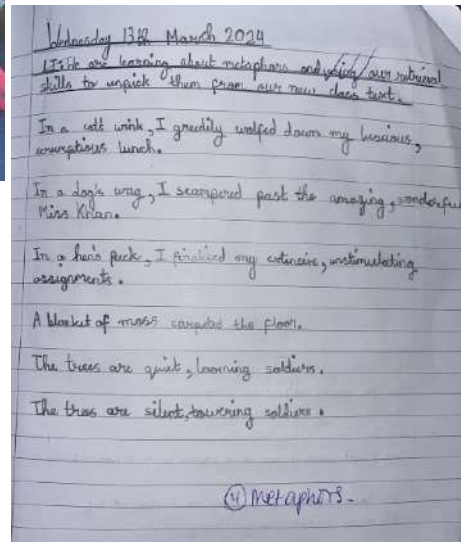 Wednesday 13th March 2024
LI: We are learning about metaphors and using our retrieval
skills to unpick them from our new class text.
In a cat's wink, I greedily wolfed down my luscious,
scrumptious lunch.
In a dog's wag, I scampered past the amazing, wonderful
Miss Khan.
In a hen's peck, I finalised my extensive, unstimulating
assignments.
A blanket of moss carpeted the floor.
The trees are quiet, looming soldiers.
The trees are silent, towering soldiers.
4 Metaphors.